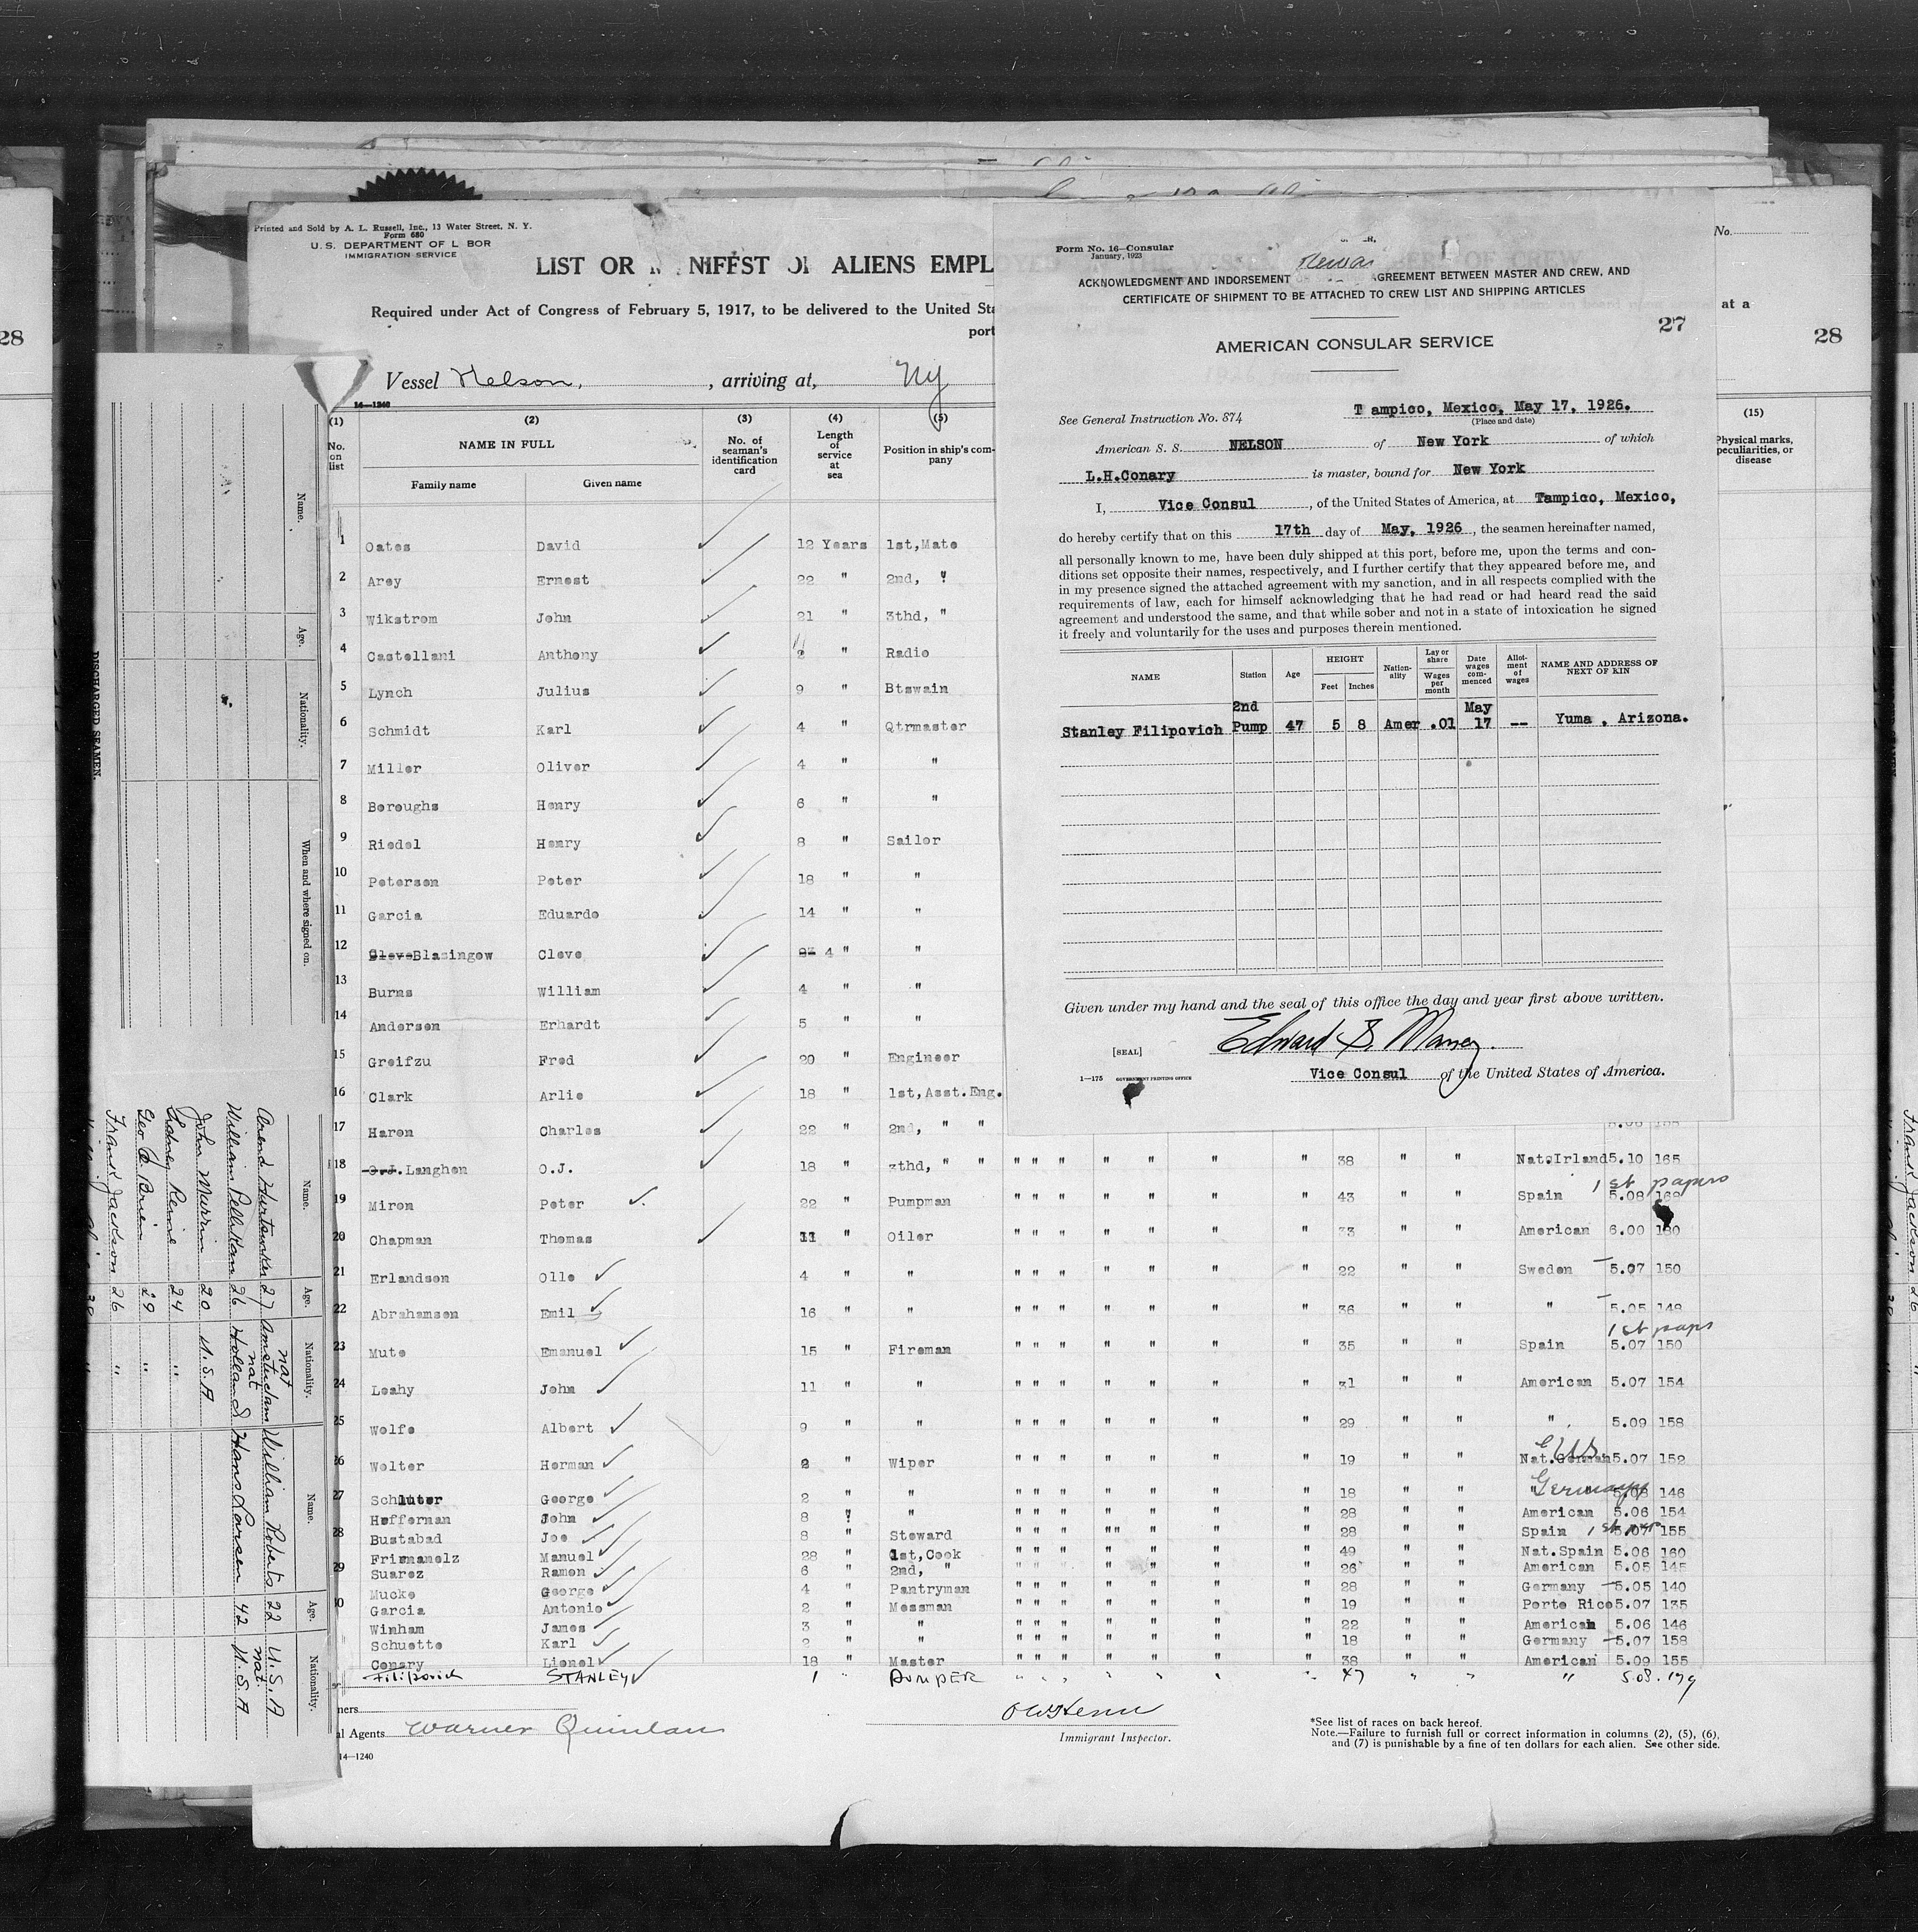 28
Printed and Sold by A. L. Russell, Inc., 13 Water Street, N. Y.
Form 680
U. S. DEPARTMENT OF L BOR
IMMIGRATION SERVICE
LIST OR M NIFEST OF ALIENS EMPL
Required under Act of Congress of February 5, 1917, to be delivered to the United Sta
port
Vessel Nelson, , arriving at, Ny
14—1240
(1) (2) (3) (4) (5)
No. on list
NAME IN FULL
Family name Given name
No. of seaman's identification card
Length of service at sea
Position in ship's company
1 Oates David 12 Years 1st,Mate
2 Arey Ernest 22 " 2nd, "
3 Wikstrom John 21 " 3thd, "
4 Castellani Anthony 2 " Radio
5 Lynch Julius 9 " Btswain
6 Schmidt Karl 4 " Qtrmaster
7 Miller Oliver 4 " "
8 Boroughs Henry 6 " "
9 Riedel Henry 8 " Sailor
10 Petersen Peter 18 " "
11 Garcia Eduardo 14 " "
12 Cleve Blasingow Cleve 4 " "
13 Burns William 4 " "
14 Andersen Erhardt 5 " "
15 Greifzu Fred 20 " Engineer
16 Clark Arlie 18 " 1st,Asst.Eng.
17 Haron Charles 22 " 2nd, " "
18 O.J. Langhon O.J. 18 " 3thd, " " " " " " " " " 38 " " Nat.Irland 5.10 165
1st papers
19 Miron Peter 22 " Pumpman " " " " " " " 43 " " Spain 5.08 168
20 Chapman Thomas 11 " Oiler " " " " " " " 33 " " American 6.00 180
21 Erlandsen Olle 4 " " " " " " " " " 22 " " Sweden 5.07 150
22 Abrahamsen Emil 16 " " " " " " " " " 36 " " " 5.05 148
1st paps
23 Mute Emanuel 15 " Fireman " " " " " " " 35 " " Spain 5.07 150
24 Leahy John 11 " " " " " " " " " 31 " " American 5.07 154
25 Wolfe Albert 9 " " " " " " " " " 29 " " " 5.09 158
26 Wolter Herman 2 " Wiper " " " " " " " 19 " " Nat.German 5.07 152
Germany
27 Schluter George 2 " " " " " " " " " 18 " " " 5.08 146
Heffernan John 8 " " " " " " " " " 28 " " American 5.06 154
28 Bustabad Joe 8 " Steward " " " " " " 28 " " Spain 5.07 155
Frimanelz Manuel 28 " 1st,Cook " " " " " " " 49 " " Nat.Spain 5.06 160
29 Suarez Ramon 6 " 2nd, " " " " " " " " 26 " " American 5.05 145
Mucke George 4 " Pantryman " " " " " " " 28 " " Germany 5.05 140
30 Garcia Antonio 2 " Messman " " " " " " " 19 " " Porto Rico 5.07 135
Winham James 3 " " " " " " " " " 22 " " American 5.06 146
Schuette Karl 2 " " " " " " " " " 18 " " Germany 5.07 158
Conary Lionel 18 " Master " " " " " " " 38 " " American 5.09 155
Filipovich STANLEY 1 " PUMPER " " " " " " " 47 " " " 5.08 179
ners
l Agents Warner Quinlan
14—1240
Immigrant Inspector.
*See list of races on back hereof.
Note.—Failure to furnish full or correct information in columns (2), (5), (6), and (7) is punishable by a fine of ten dollars for each alien. See other side.
Form No. 16—Consular
January, 1923
ACKNOWLEDGMENT AND INDORSEMENT AGREEMENT BETWEEN MASTER AND CREW, AND
CERTIFICATE OF SHIPMENT TO BE ATTACHED TO CREW LIST AND SHIPPING ARTICLES
27
AMERICAN CONSULAR SERVICE
See General Instruction No. 874
T ampico, Mexico, May 17, 1926.
(Place and date)
American S. S. NELSON of New York of which
L.H.Conary is master, bound for New York
I, Vice Consul , of the United States of America, at Tampico, Mexico,
do hereby certify that on this 17th day of May, 1926 , the seamen hereinafter named,
all personally known to me, have been duly shipped at this port, before me, upon the terms and con-
ditions set opposite their names, respectively, and I further certify that they appeared before me, and
in my presence signed the attached agreement with my sanction, and in all respects complied with the
requirements of law, each for himself acknowledging that he had read or had heard read the said
agreement and understood the same, and that while sober and not in a state of intoxication he signed
it freely and voluntarily for the uses and purposes therein mentioned.
NAME Station Age HEIGHT Feet Inches Nationality Lay or share Wages per month Date wages commenced Allotment of wages NAME AND ADDRESS OF NEXT OF KIN
Stanley Filipovich 2nd Pump 47 5 8 Amer .01 May 17 -- Yuma . Arizona.
Given under my hand and the seal of this office the day and year first above written.
[SEAL]
Vice Consul of the United States of America.
1—175 GOVERNMENT PRINTING OFFICE
No.
at a
28
(15)
Physical marks, peculiarities, or disease
DISCHARGED SEAMEN.
Name. Age. Nationality. When and where signed on.
Name. Age. Nationality. Name. Age. Nationality.
27 nat Amsterdam William Roberts 22 U.S.A
William Pellikan 26 nat Holland Hans Larsen 42 nat. U.S.A
John Murrin 20 U.S.A
24 "
Geo O Brien 29 "
Frank Jackson 26 "